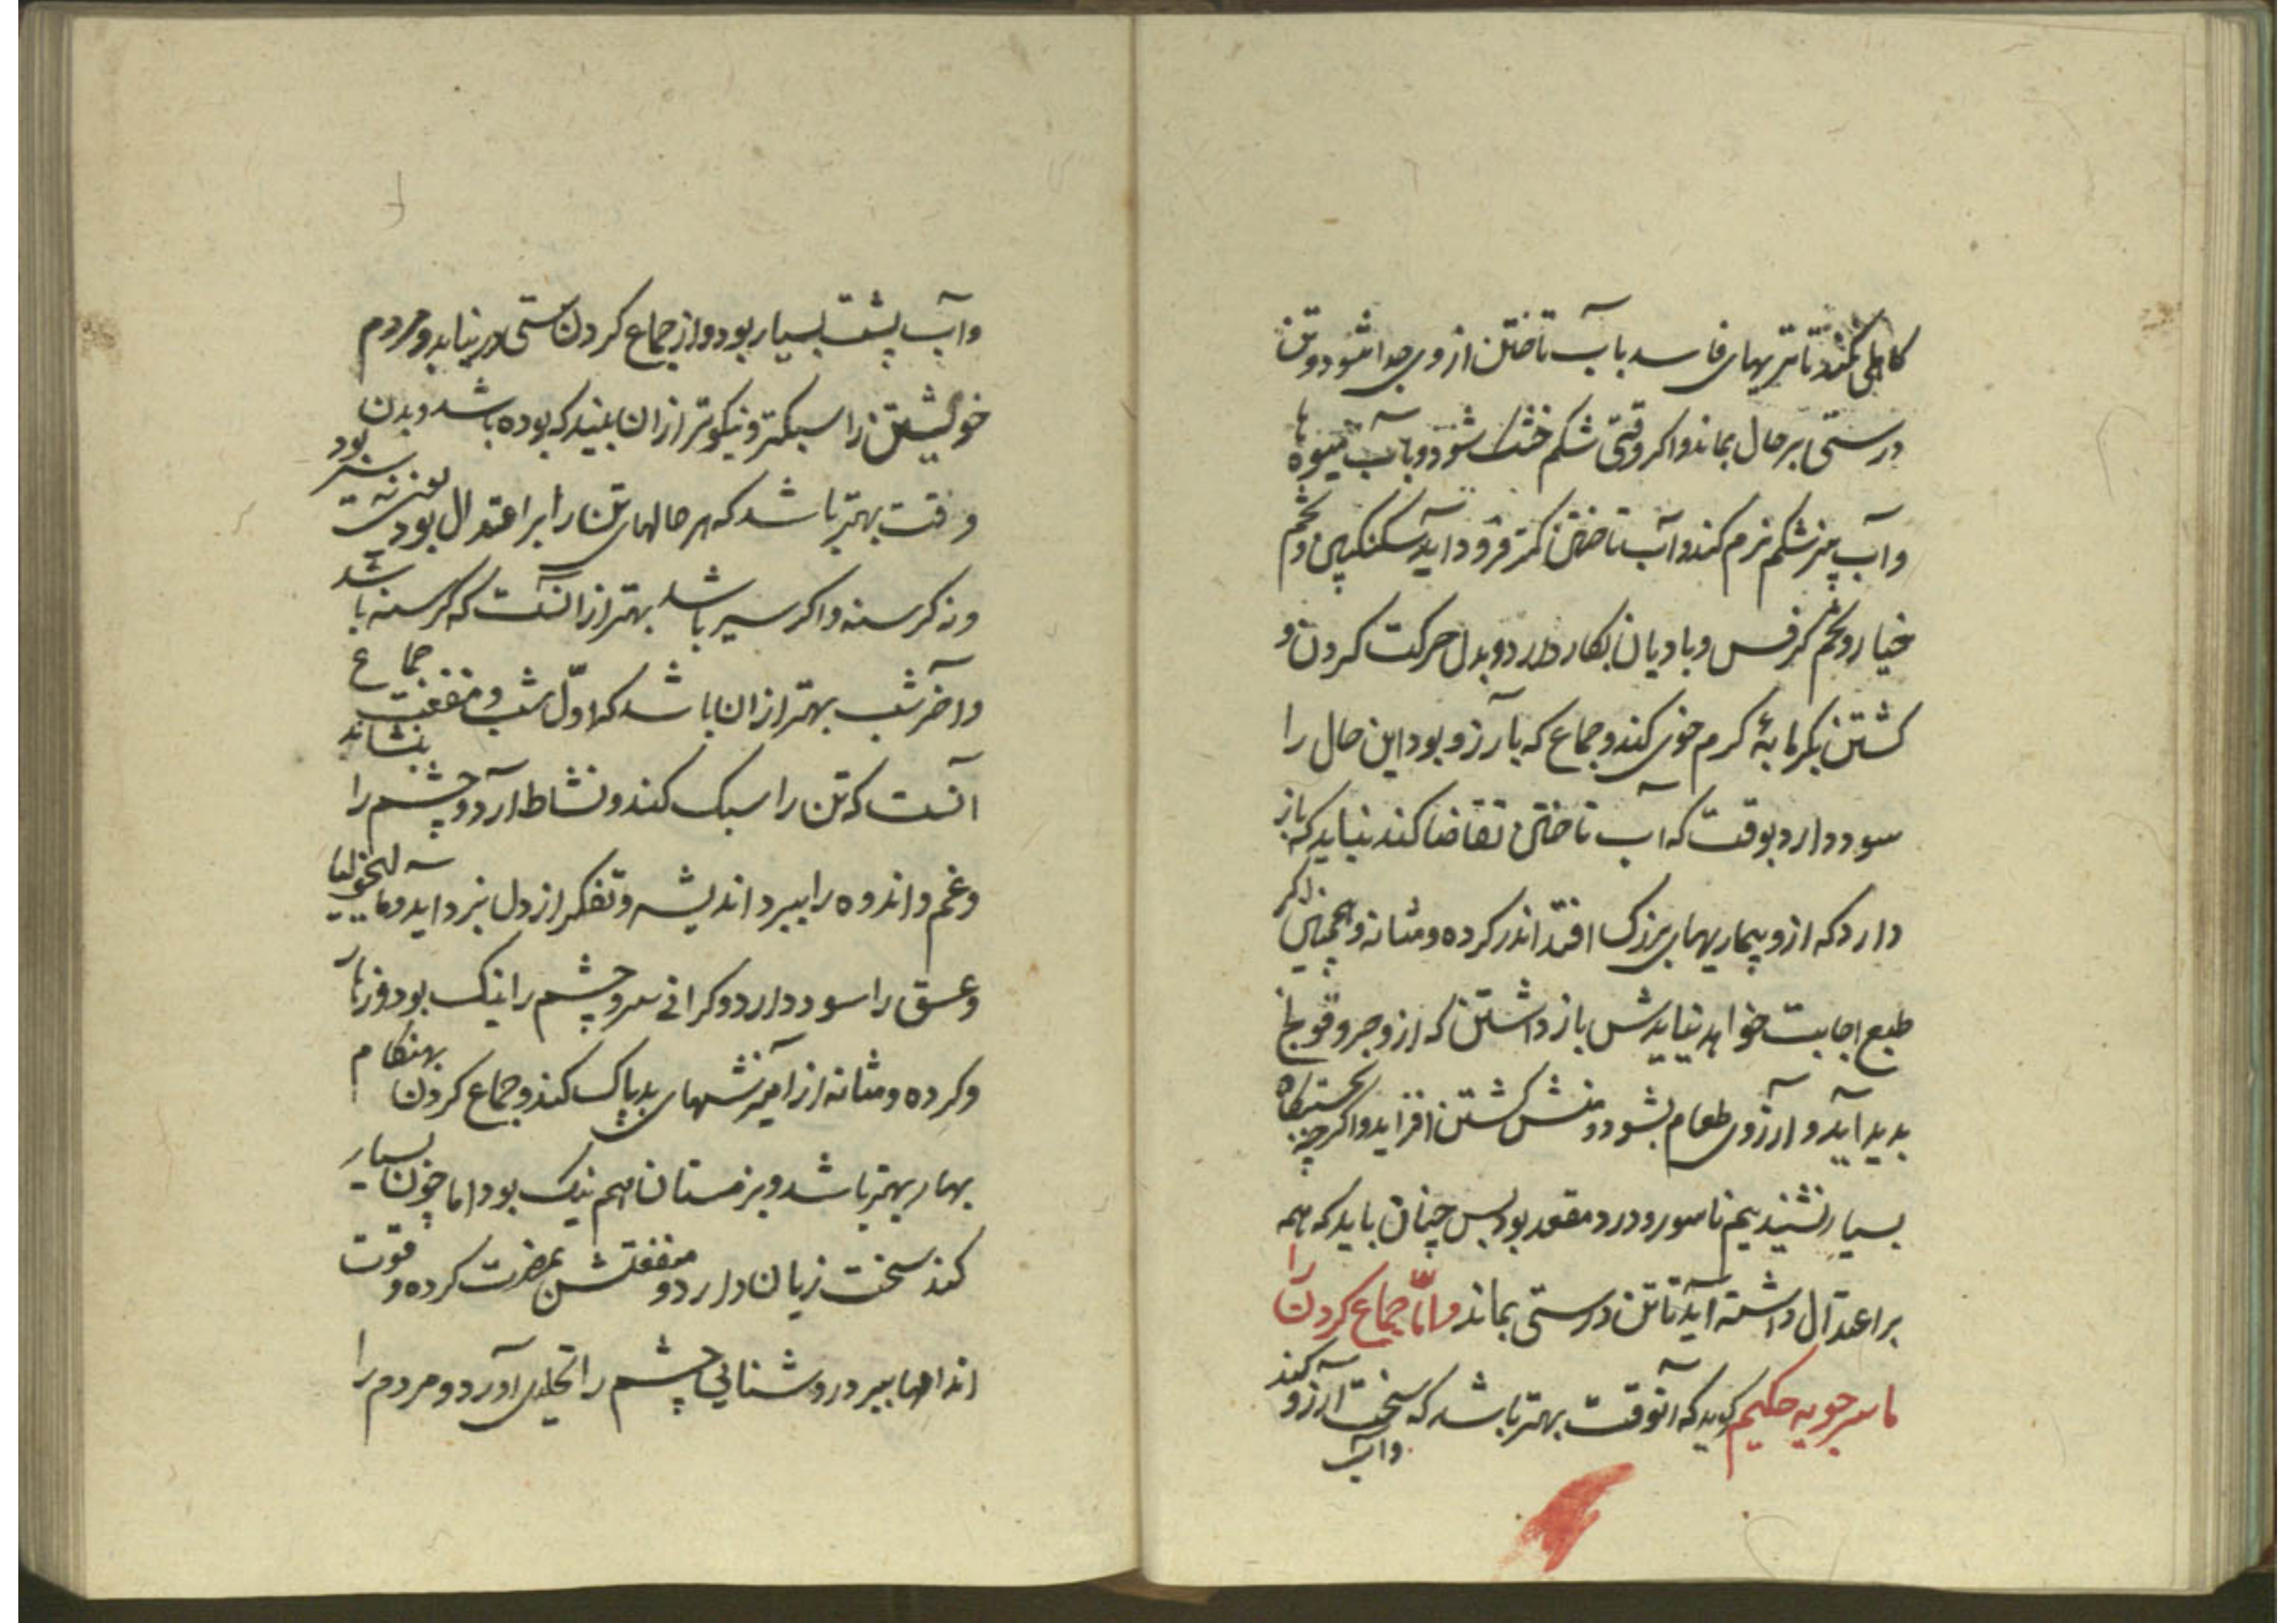 کاهلی نکند تا تریهای فاسد با آب تاختن ازوی جدا شود و تن
درستی بر حال بماند و اکر وقتی شکم خشک شود و بآب میوه ها
و آب پنیر شکم نرم کند و آب تاختن کمتر فرود اید سکنکبین و تخم
خیار و تخم کرفس و بادیان بکار دارد و بدل حرکت کردن و
کشتن بکرمابهٔ کرم خوی کند و جماع که بآرزو بود این حال را
سود دارد بوقت که آب تاختن تقاضا کند نباید که باز
دارد که ازو بیماریهای بزرک افتد اندر کرده و مثانه و همچنین اکر
طبع اجابت خواهد نبایدش باز داشتن که ازو جر و قولنج
بدید آید و آرزوی طعام بشود و منش کشتن افزاید و اکر چه بجستکاه
بسیار نشیند بیم ناسور و درد مقعد بود بس چنان باید که همه
بر اعتدال داشته آید تا تن درستی بماند و امّا جماع کردن را
ماسرجویه حکیم کوید که آنوقت بهتر باشد که سخت آرزو کند
و آب
و آب پشت بسیار بود و از جماع کردن سستی در نیاید و مردم
خویشتن را سبکتر و نیکوتر از ان بیند که بوده باشد و بدن
وقت بهتر باشد که هر حالهای تن را بر اعتدال بود یعنی نه سیر بود
و نه کرسنه و اکر سیر باشد بهتر از انست که کرسنه باشد
و آخر شب بهتر از ان باشد که اوّل شب و منفعت جماع
آنست که تن را سبک کند و نشاط آرد و خشم را بنشاند
و غم و اندوه را ببرد اندیشه و تفکر از دل بزداید و مالیخولیا
و عشق را سود دارد و کرانی سر و چشم را نیک بود و زهار
و کرده و مثانه از آمیزشهای بد پاک کند و جماع کردن بهنکام
بهار بهتر باشد و بزمستان هم نیک بود اما چون بسیار
کند سخت زیان دارد و منفعتش بمضرت کرده و قوت
اندامها ببرد و روشنایی چشم را تحلیل آورد و مردم را